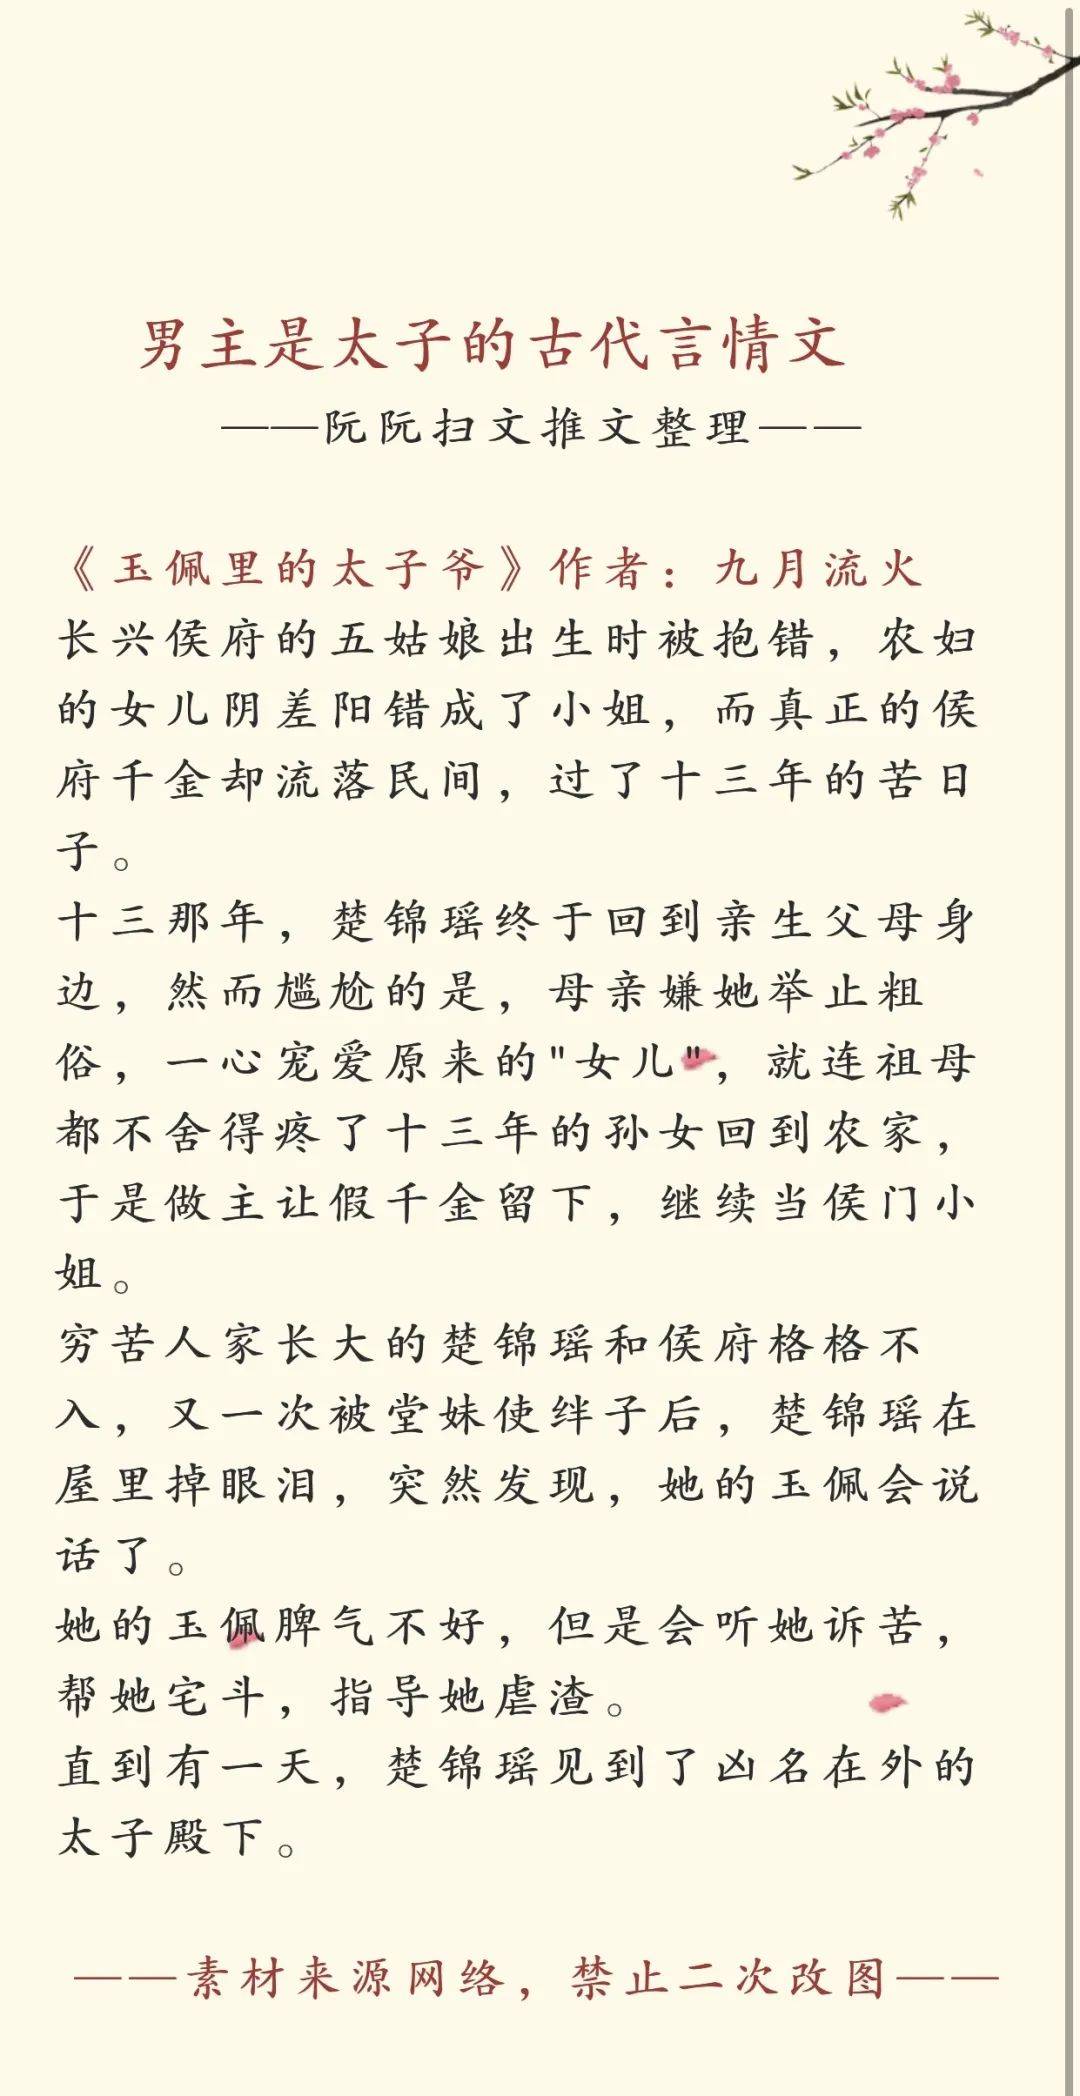 男主是太子的古代言情文
——阮阮扫文推文整理——
《玉佩里的太子爷》作者：九月流火
长兴侯府的五姑娘出生时被抱错，农妇
的女儿阴差阳错成了小姐，而真正的侯
府千金却流落民间，过了十三年的苦日
子。
十三那年，楚锦瑶终于回到亲生父母身
边，然而尴尬的是，母亲嫌她举止粗
俗，一心宠爱原来的"女儿"，就连祖母
都不舍得疼了十三年的孙女回到农家，
于是做主让假千金留下，继续当侯门小
姐。
穷苦人家长大的楚锦瑶和侯府格格不
入，又一次被堂妹使绊子后，楚锦瑶在
屋里掉眼泪，突然发现，她的玉佩会说
话了。
她的玉佩脾气不好，但是会听她诉苦，
帮她宅斗，指导她虐渣。
直到有一天，楚锦瑶见到了凶名在外的
太子殿下。
——素材来源网络，禁止二次改图——